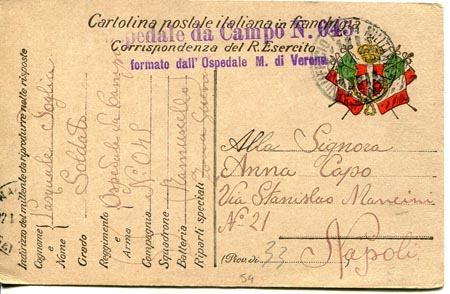 Cartolina postale italiana in franchigia
Ospedale da Campo N. 045
Corrispondenza del R. Esercito
formato dall' Ospedale M. di Verona
Indirizzo del mittente da riprodurre nelle risposte
Cognome e Nome Pasquale
Grado Soldato
Reggimento e Arma Ospedale da Campo
Compagnia N° 045
Squadrone
Batteria
Riparti speciali Zona Guerra
Alla Signora
Anna Capo
Via Stanislao Mancini
N° 21
Napoli
(Prov. di 33
54